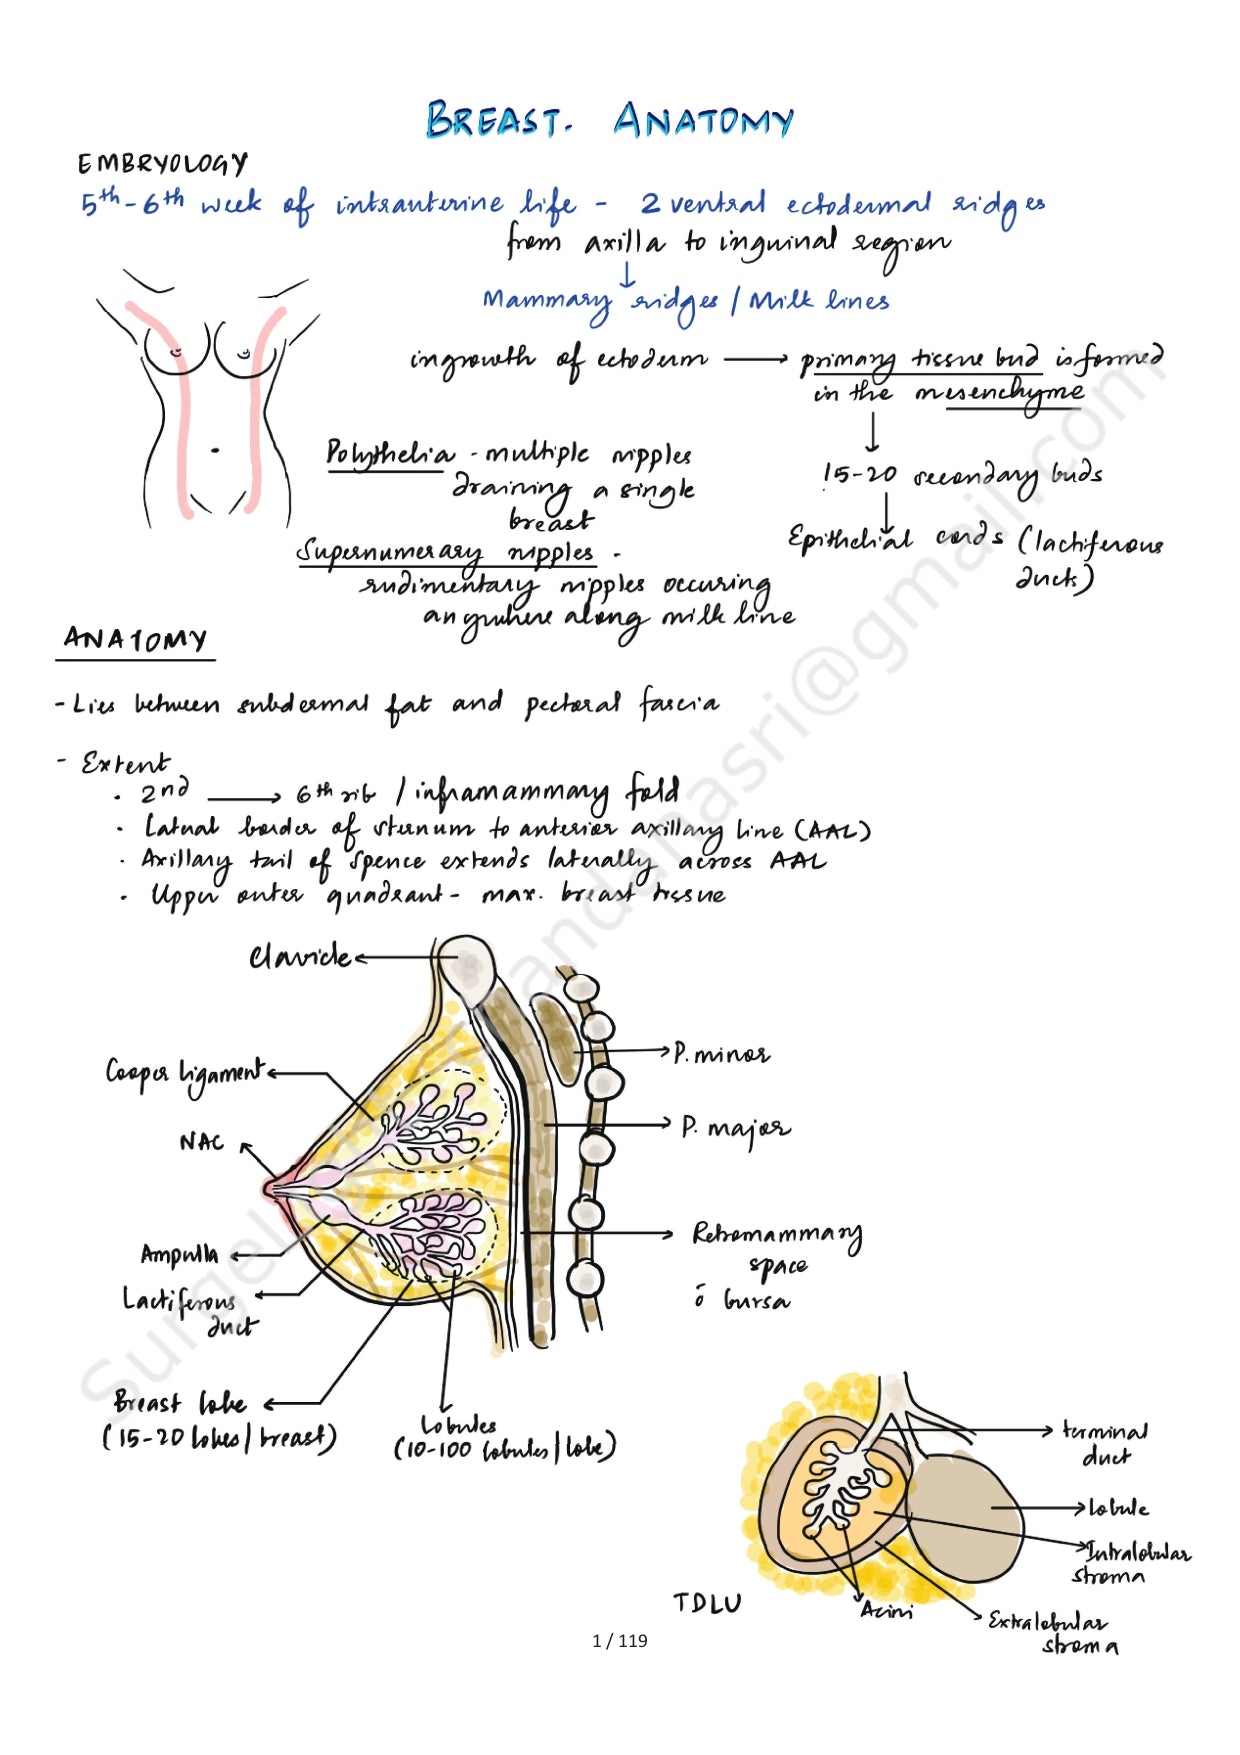 BREAST. ANATOMY
EMBRYOLOGY
5th-6th week of intrauterine life - 2 ventral ectodermal ridges
from axilla to inguinal region
↓
Mammary ridges / Milk lines
ingrowth of ectoderm → primary tissue bud is formed
in the mesenchyme
↓
15-20 secondary buds
↓
Epithelial cords (lactiferous
ducts)
Polythelia - multiple nipples
draining a single
breast
Supernumerary nipples -
rudimentary nipples occuring
anywhere along milk line
ANATOMY
- Lies between subdermal fat and pectoral fascia
- Extent
· 2nd → 6th rib / inframammary fold
· Lateral border of sternum to anterior axillary line (AAL)
· Axillary tail of Spence extends laterally across AAL
· Upper outer quadrant - max. breast tissue
Clavicle
Cooper ligament
NAC
Ampulla
Lactiferous
duct
Breast lobe
(15-20 lobes/breast)
Lobules
(10-100 lobules/lobe)
P. minor
P. major
Retromammary
space
c̄ bursa
terminal
duct
lobule
Intralobular
stroma
Extralobular
stroma
Acini
TDLU
1 / 119
andanasri@gmail.com